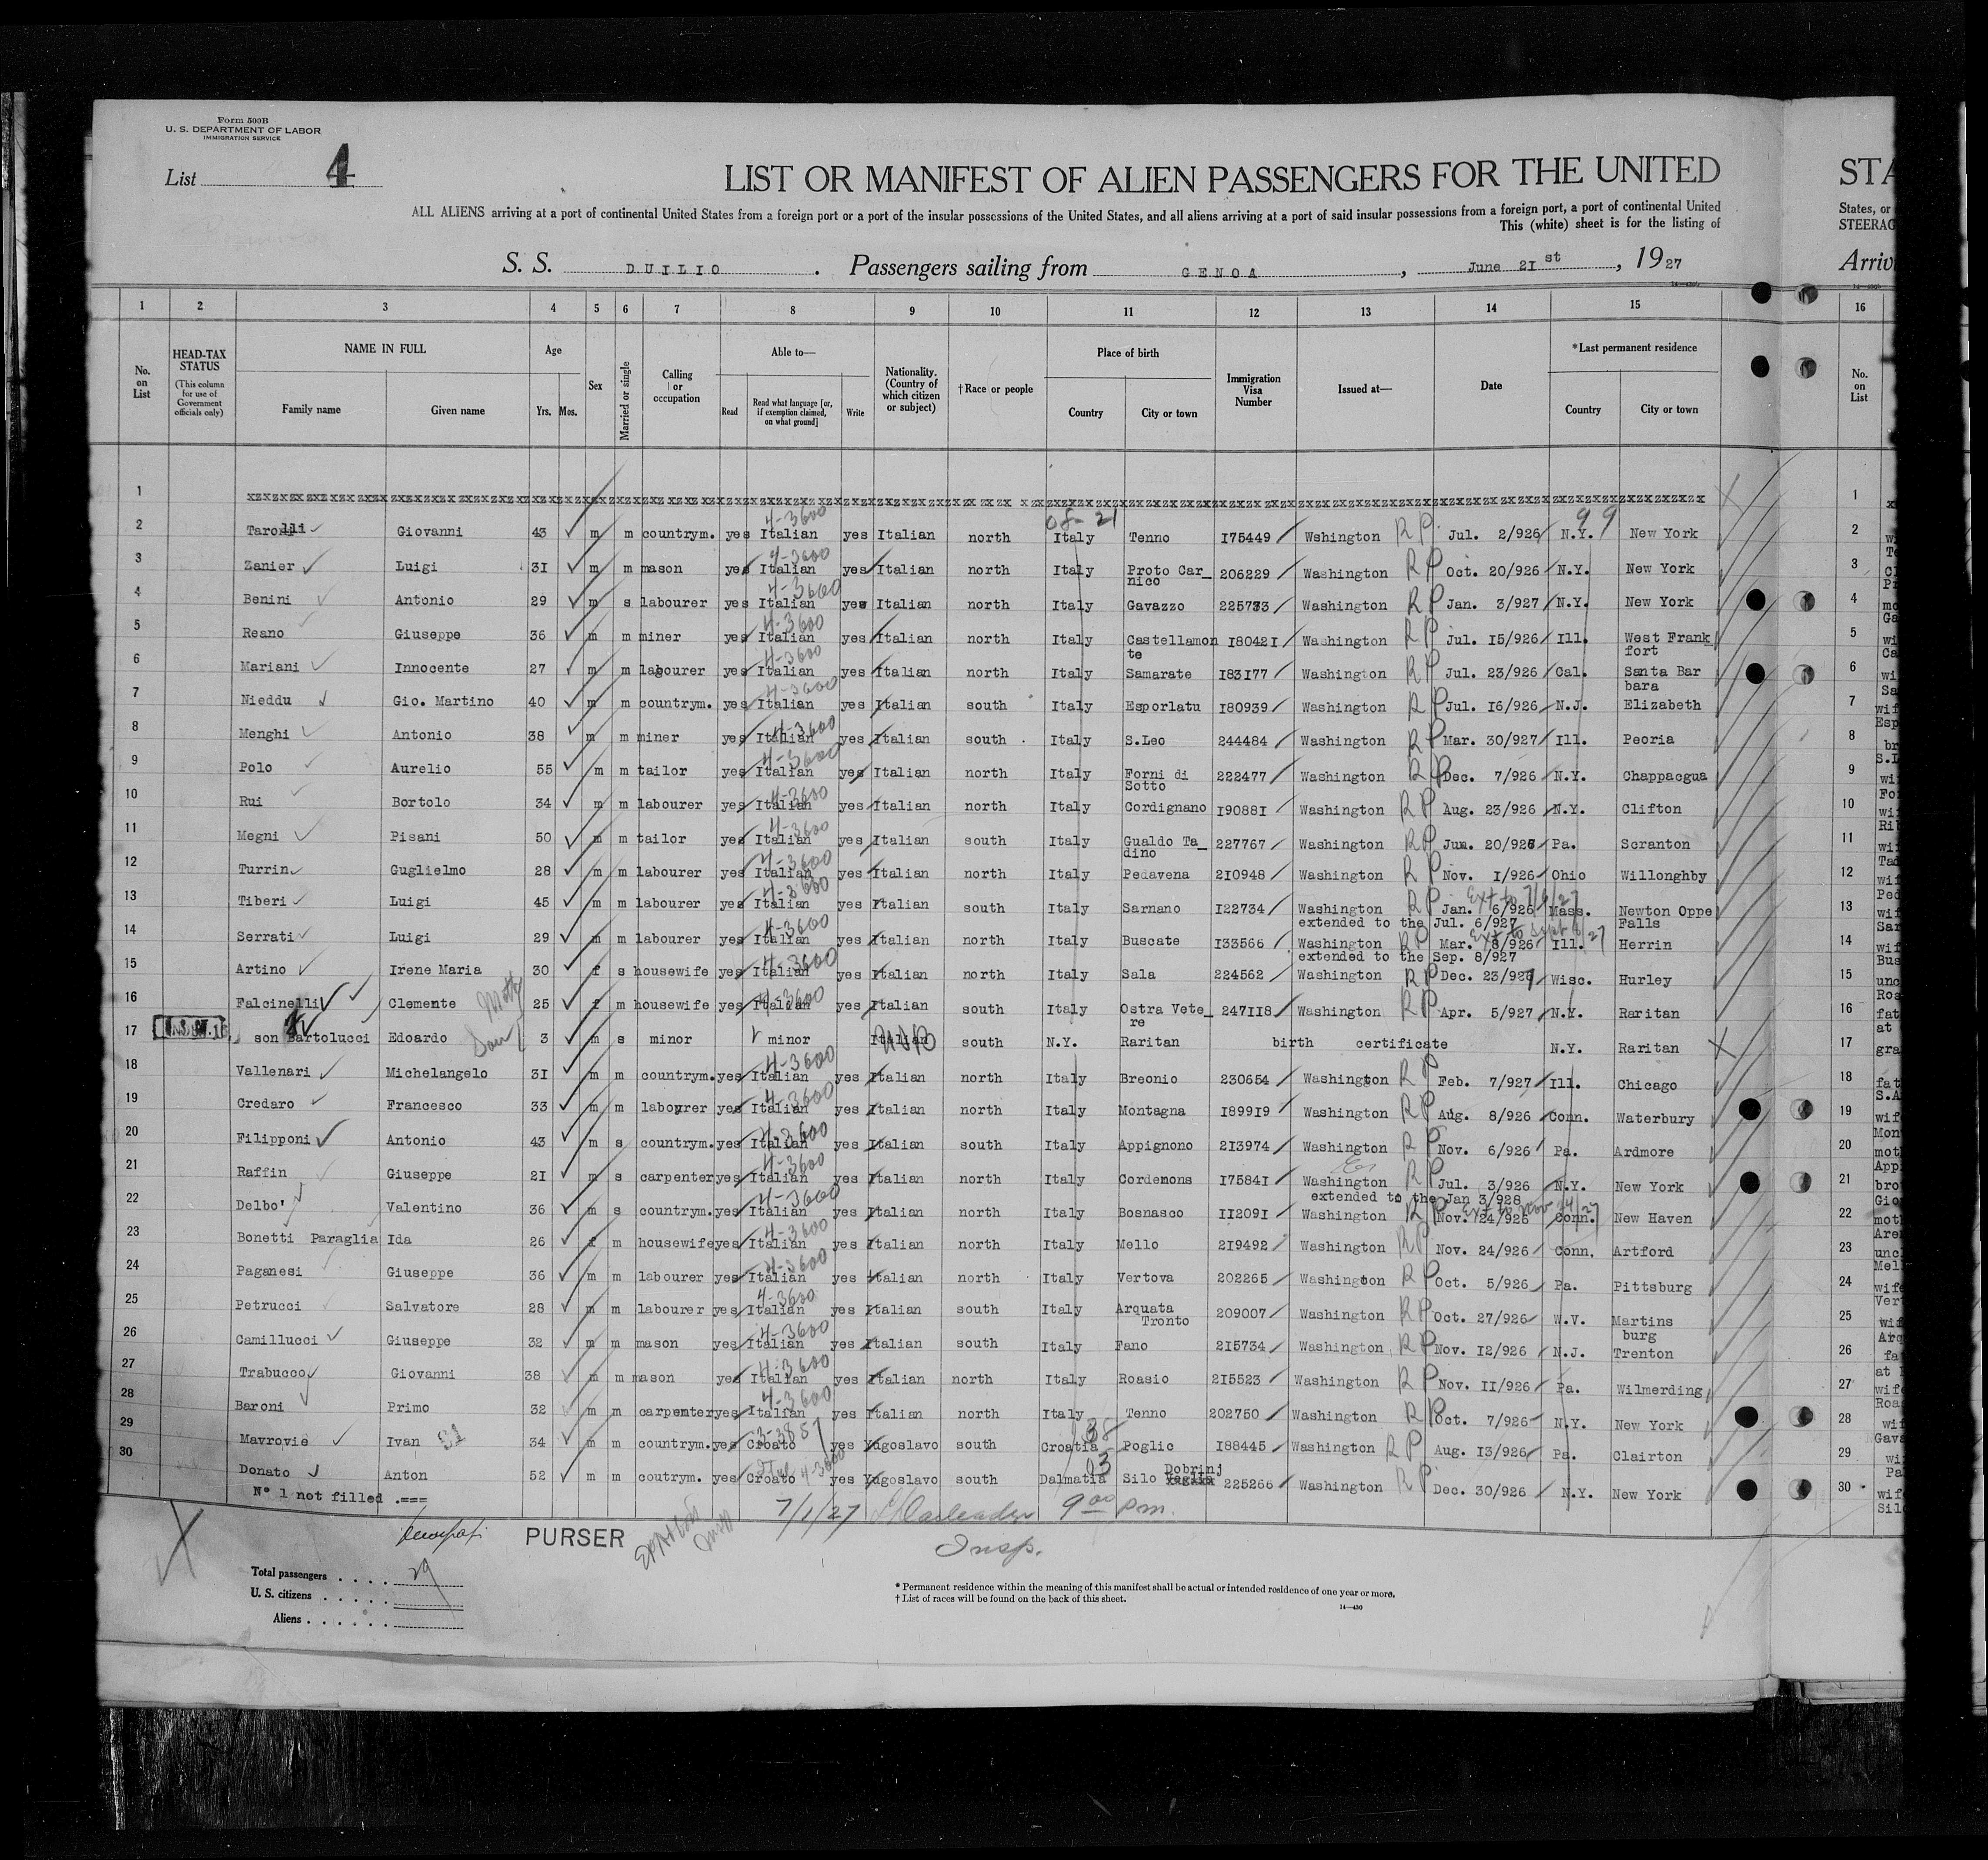 Form 500B
U. S. DEPARTMENT OF LABOR
IMMIGRATION SERVICE
List 4
LIST OR MANIFEST OF ALIEN PASSENGERS FOR THE UNITED STA
ALL ALIENS arriving at a port of continental United States from a foreign port or a port of the insular possessions of the United States, and all aliens arriving at a port of said insular possessions from a foreign port, a port of continental United States, or
This (white) sheet is for the listing of STEERAG
S. S. DUILIO. Passengers sailing from GENOA, June 21st, 1927 Arriv
1 2 3 4 5 6 7 8 9 10 11 12 13 14 15 16
No. on List
HEAD-TAX STATUS
(This column for use of Government officials only)
NAME IN FULL
Family name Given name
Age
Yrs. Mos.
Sex
Married or single
Calling or occupation
Able to—
Read Read what language [or, if exemption claimed, on what ground] Write
Nationality. (Country of which citizen or subject)
†Race or people
Place of birth
Country City or town
Immigration Visa Number
Issued at—
Date
*Last permanent residence
Country City or town
No. on List
1 1
4-3600 08-21 99
2 Tarolli Giovanni 43 m m countrym. yes Italian yes Italian north Italy Tenno 175449 Wshington RP Jul. 2/926 N.Y. New York 2
4-3600
3 Zanier Luigi 31 m m mason yes Italian yes Italian north Italy Proto Car_ nico 206229 Washington RP Oct. 20/926 N.Y. New York 3
4-3600
4 Benini Antonio 29 m s labourer yes Italian yes Italian north Italy Gavazzo 225733 Washington RP Jan. 3/927 N.Y. New York 4
4-3600
5 Reano Giuseppe 36 m m miner yes Italian yes Italian north Italy Castellamon te 180421 Washington RP Jul. 15/926 Ill. West Frank_ fort 5
4-3600
6 Mariani Innocente 27 m m labourer yes Italian yes Italian north Italy Samarate 183177 Washington RP Jul. 23/926 Cal. Santa Bar bara 6
4-3600
7 Nieddu Gio. Martino 40 m m countrym. yes Italian yes Italian south Italy Esporlatu 180939 Washington RP Jul. 16/926 N.J. Elizabeth 7
4-3600
8 Menghi Antonio 38 m m miner yes Italian yes Italian south Italy S.Leo 244484 Washington RP Mar. 30/927 Ill. Peoria 8
4-3600
9 Polo Aurelio 55 m m tailor yes Italian yes Italian north Italy Forni di Sotto 222477 Washington RP Dec. 7/926 N.Y. Chappacgua 9
4-3600
10 Rui Bortolo 34 m m labourer yes Italian yes Italian north Italy Cordignano 190881 Washington RP Aug. 23/926 N.Y. Clifton 10
4-3600
11 Megni Pisani 50 m m tailor yes Italian yes Italian south Italy Gualdo Ta_ dino 227767 Washington RP 20/926 Pa. Scranton 11
4-3600
12 Turrin Guglielmo 28 m m labourer yes Italian yes Italian north Italy Pedavena 210948 Washington RP Nov. 1/926 Ohio Willonghby 12
4-3600 Ext to 7/6/27
13 Tiberi Luigi 45 m m labourer yes Italian yes Italian south Italy Sarnano 122734 Washington RP Jan. 6/926 Mass. Newton Oppe Falls 13
extended to the Jul. 6/927
4-3600 Ext to Sept 8/27
14 Serrati Luigi 29 m m labourer yes Italian yes Italian north Italy Buscate 133566 Washington RP Mar. 8/926 Ill. Herrin 14
extended to the Sep. 8/927
4-3600
15 Artino Irene Maria 30 f s housewife yes Italian yes Italian north Italy Sala 224562 Washington RP Dec. 23/927 Wisc. Hurley 15
4-3600
16 Falcinelli Clemente 25 f m housewife yes Italian yes Italian south Italy Ostra Vete_ re 247118 Washington RP Apr. 5/927 N.Y. Raritan 16
17 son Bartolucci Edoardo Son 3 m s minor minor Italian south N.Y. Raritan birth certificate N.Y. Raritan 17
4-3600
18 Vallenari Michelangelo 31 m m countrym. yes Italian yes Italian north Italy Breonio 230654 Washington RP Feb. 7/927 Ill. Chicago 18
4-3600
19 Credaro Francesco 33 m m labourer yes Italian yes Italian north Italy Montagna 189919 Washington RP Aug. 8/926 Conn. Waterbury 19
4-3600
20 Filipponi Antonio 43 m s countrym. yes Italian yes Italian south Italy Appignono 213974 Washington RP Nov. 6/926 Pa. Ardmore 20
4-3600
21 Raffin Giuseppe 21 m s carpenter yes Italian yes Italian north Italy Cordenons 175841 Washington RP Jul. 3/926 N.Y. New York 21
extended to the Jan 3/928
4-3600 Ext to Nov 24/27
22 Delbo' Valentino 36 m s countrym. yes Italian yes Italian north Italy Bosnasco 112091 Washington RP Nov. 24/925 Conn. New Haven 22
4-3600
23 Bonetti Paraglia Ida 26 f m housewife yes Italian yes Italian north Italy Mello 219492 Washington RP Nov. 24/926 Conn. Artford 23
4-3600
24 Paganesi Giuseppe 36 m m labourer yes Italian yes Italian north Italy Vertova 202265 Washington RP Oct. 5/926 Pa. Pittsburg 24
4-3600
25 Petrucci Salvatore 28 m m labourer yes Italian yes Italian south Italy Arquata Tronto 209007 Washington RP Oct. 27/926 W.V. Martins burg 25
4-3600
26 Camillucci Giuseppe 32 m m mason yes Italian yes Italian south Italy Fano 215734 Washington RP Nov. 12/926 N.J. Trenton 26
4-3600
27 Trabucco Giovanni 38 m m mason yes Italian yes Italian north Italy Roasio 215523 Washington RP Nov. 11/926 Pa. Wilmerding 27
4-3600
28 Baroni Primo 32 m m carpenter yes Italian yes Italian north Italy Tenno 202750 Washington RP Oct. 7/926 N.Y. New York 28
29 Mavrovie Ivan 34 m m countrym. yes Croato yes Yugoslavo south Croatia Poglic 188445 Washington RP Aug. 13/926 Pa. Clairton 29
30 Donato Anton 52 m m coutrym. yes Croato yes Yugoslavo south Dalmatia Silo Dobrinj 225266 Washington RP Dec. 30/926 N.Y. New York 30
N° 1 not filled .===
7/1/27 9 00 pm.
PURSER Insp.
Total passengers . . . . 29
U. S. citizens . . . . .
Aliens . . . . . .
* Permanent residence within the meaning of this manifest shall be actual or intended residence of one year or more.
† List of races will be found on the back of this sheet.
14—430